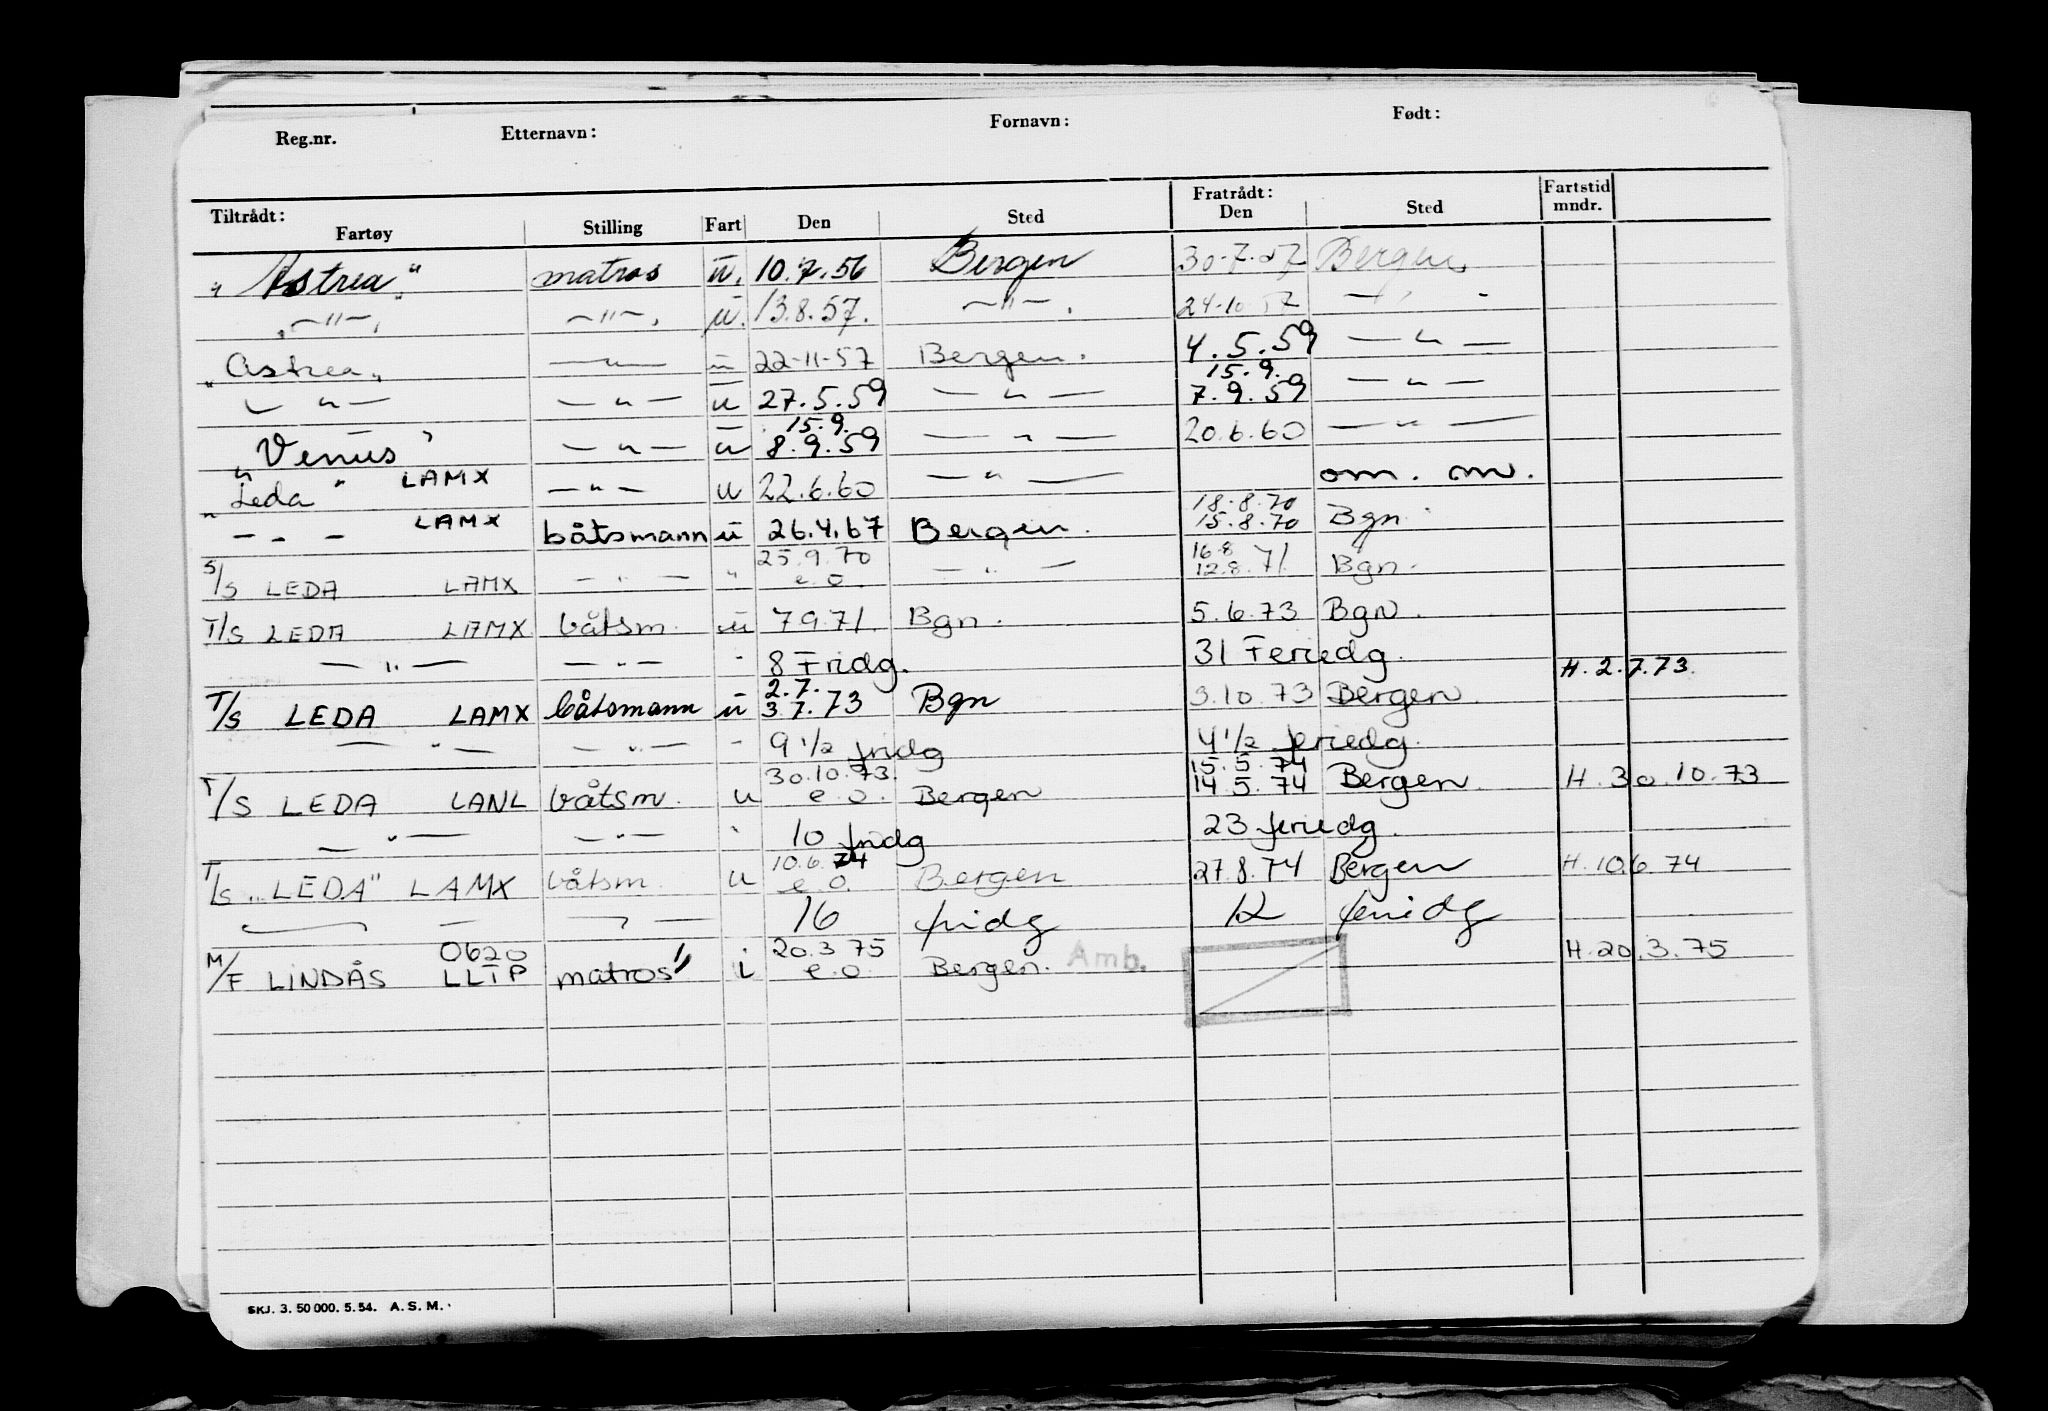 Reg.nr. Etternavn: Fornavn: Født:
Tiltrådt: Fratrådt: Fartstid
Fartøy Stilling Fart Den Sted Den Sted mndr.
„Astrea" matros u. 10.7.56 Bergen 30-7-57 Bergen
—"— —"— u. 13.8.57. —"— . 24-10-57 —"—
„Astrea„ —"— u 22-11-57 Bergen. 4.5.59 —"—
15.9.
—"— —"— u 27.5.59 —"— 7.9.59 —"—
15.9.
„Venus" —"— u 8.9.59 —"— 20.6.60 —"—
„Leda" LAMX —"— u 22.6.60 —"— om. m.
18.8.70
—"— LAMX båtsmann u 26.4.67 Bergen. 15.8.70 Bgn.
25.9.70 16.8
S/S LEDA LAMX —"— " e.o. —"— 12.8.71. Bgn.
T/S LEDA LAMX båtsm. u 7.9.71. Bgn. 5.6.73 Bgn.
—"— —"— " 8 Fridg. 31 Feriedg.
2.7. H. 2.7.73.
T/S LEDA LAMX båtsmann u 3.7.73 Bgn 3.10.73 Bergen
—"— —"— " 9 1/2 fridg 4 1/2 feriedg.
30.10.73. 15.5.74
T/S LEDA LANL båtsm. u e.o. Bergen 14.5.74 Bergen. H. 30.10.73
—"— —"— " 10 fridg 23 feriedg.
10.6.74
T/S „LEDA" LAMX båtsm. u e.o. Bergen 27.8.74 Bergen H. 10.6.74
—"— —"— 16 fridg 12 feriedg
0620 20.3.75
M/F LINDÅS LLTP matros" i e.o. Bergen. Amb. H. 20.3.75
SKJ. 3. 50 000. 5. 54. A. S. M.